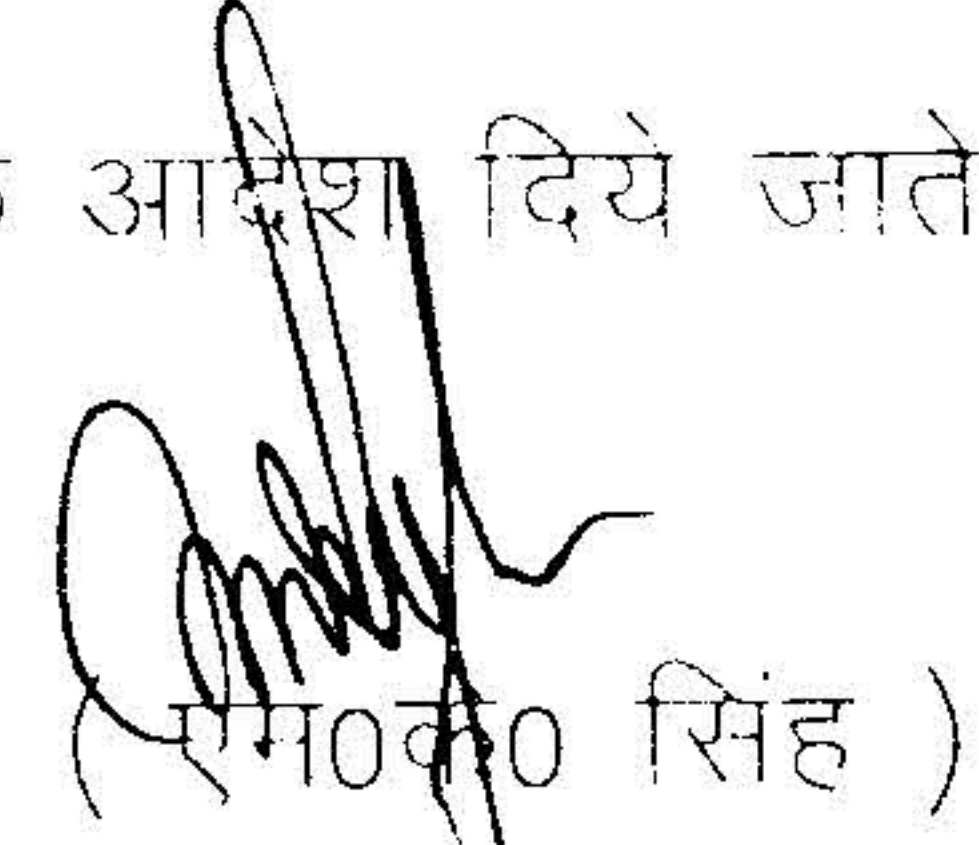 आदेश दिये जाते
( एम0के0 सिंह )